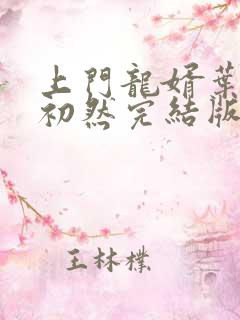 上門龍婿葉
初然完結版
王林檏